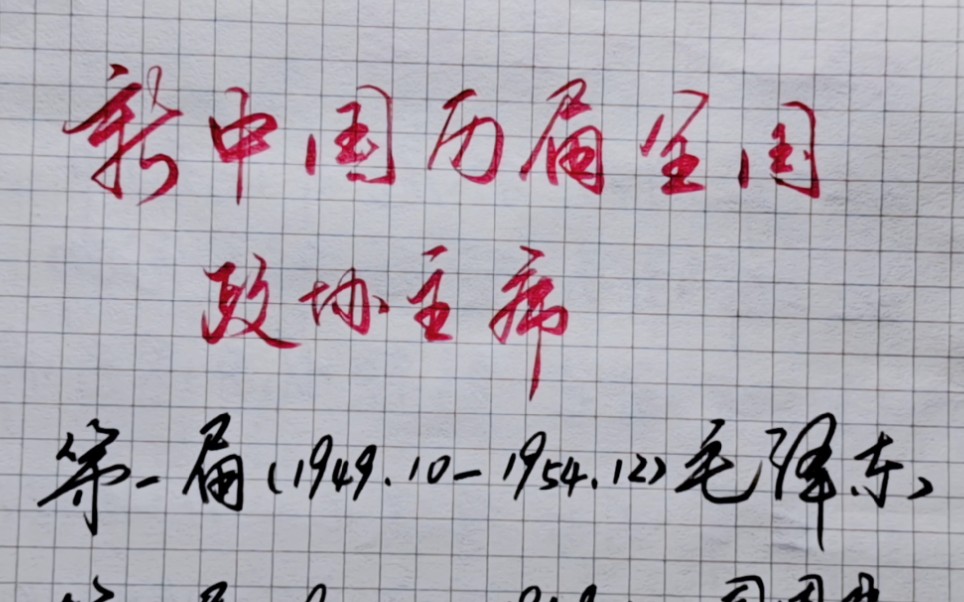 新中国历届全国
政协主席
第一届(1949.10—1954.12)毛泽东